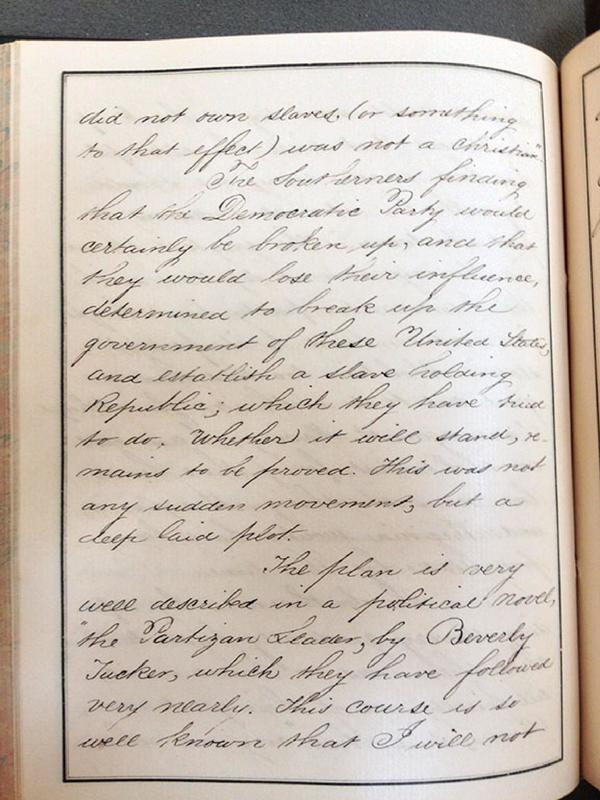 did not own slaves, (or something
to that effect) was not a christian"
The Southerners finding
that the Democratic Party would
certainly be broken up, and that
they would lose their influence,
determined to break up the
government of these United States,
and establish a slave holding
Republic; which they have tried
to do. Whether it will stand, re-
mains to be proved. This was not
any sudden movement, but a
deep laid plot.
The plan is very
well described in a political novel,
"the Partizan Leader, by Beverly
Tucker, which they have followed
very nearly. This course is so
well known that I will not